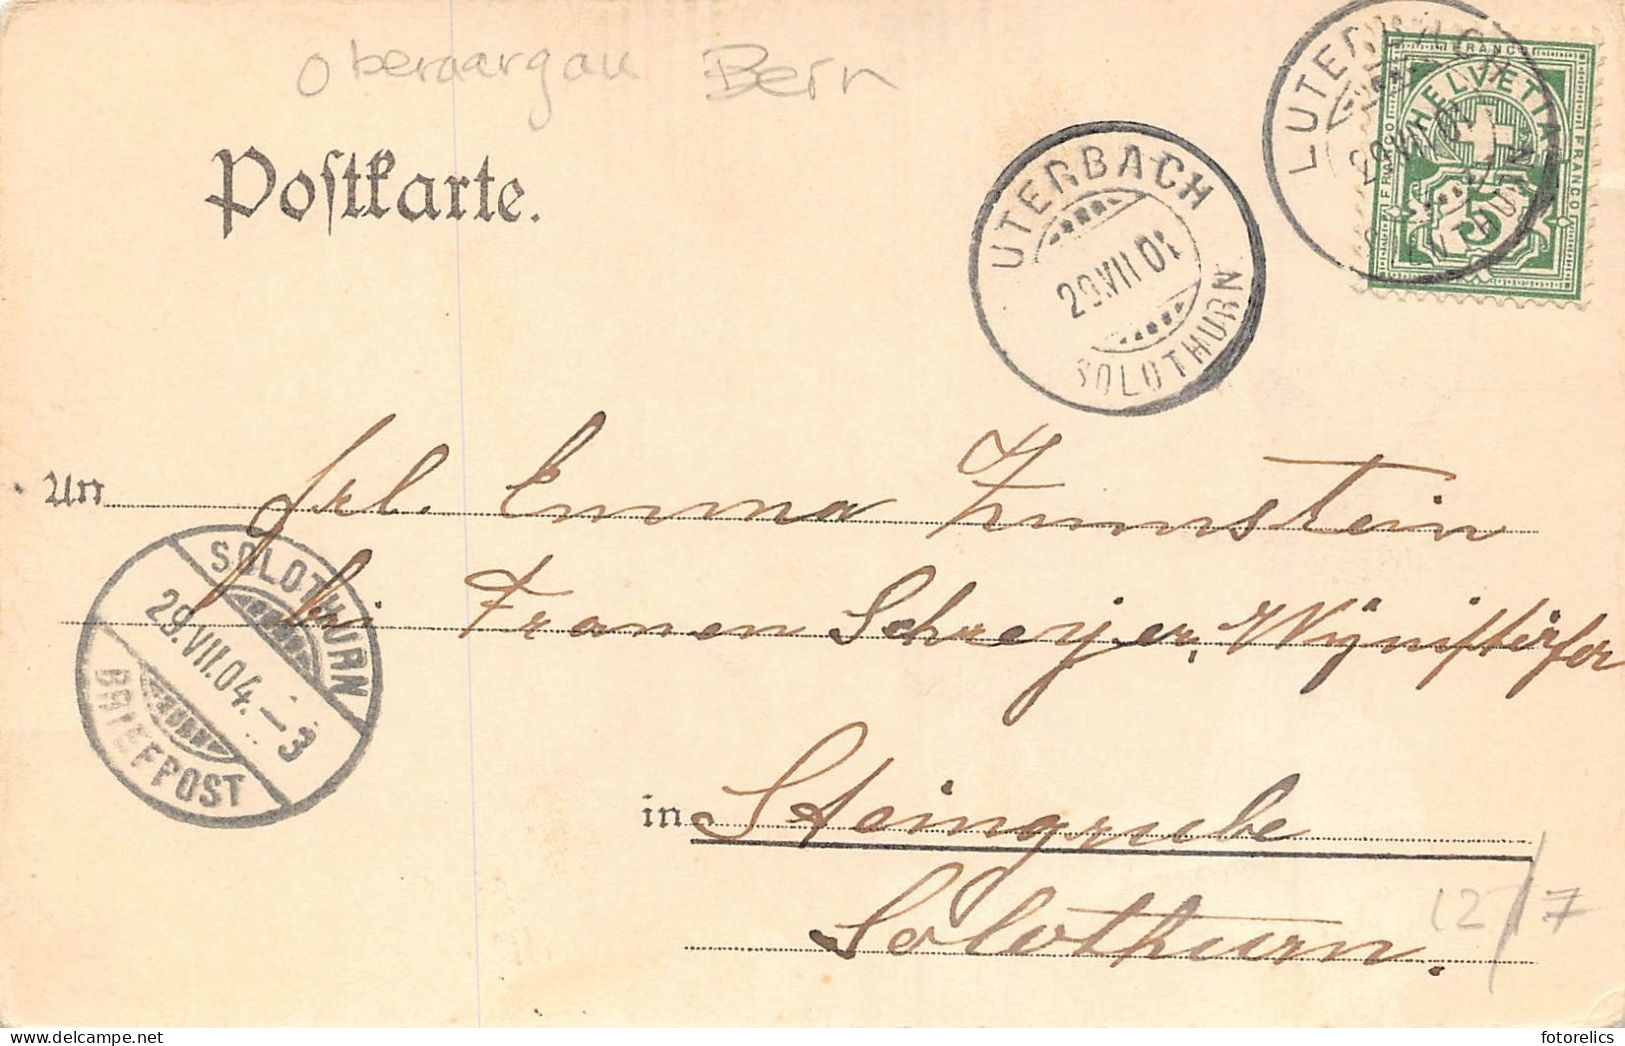 Oberaargau Bern
Postkarte.
LUTERBACH
29.VII.04
SOLOTHURN
FRANCO
HELVETIA
FRANCO
5
UTERBACH
29.VII 04
SOLOTHURN
An Frl. Emma Zumstein
bei Frauen Schreyer,
SOLOTHURN
29.VII.04.-3
BRIEFPOST
in Steingrube
Solothurn.
12/7
fotorelics